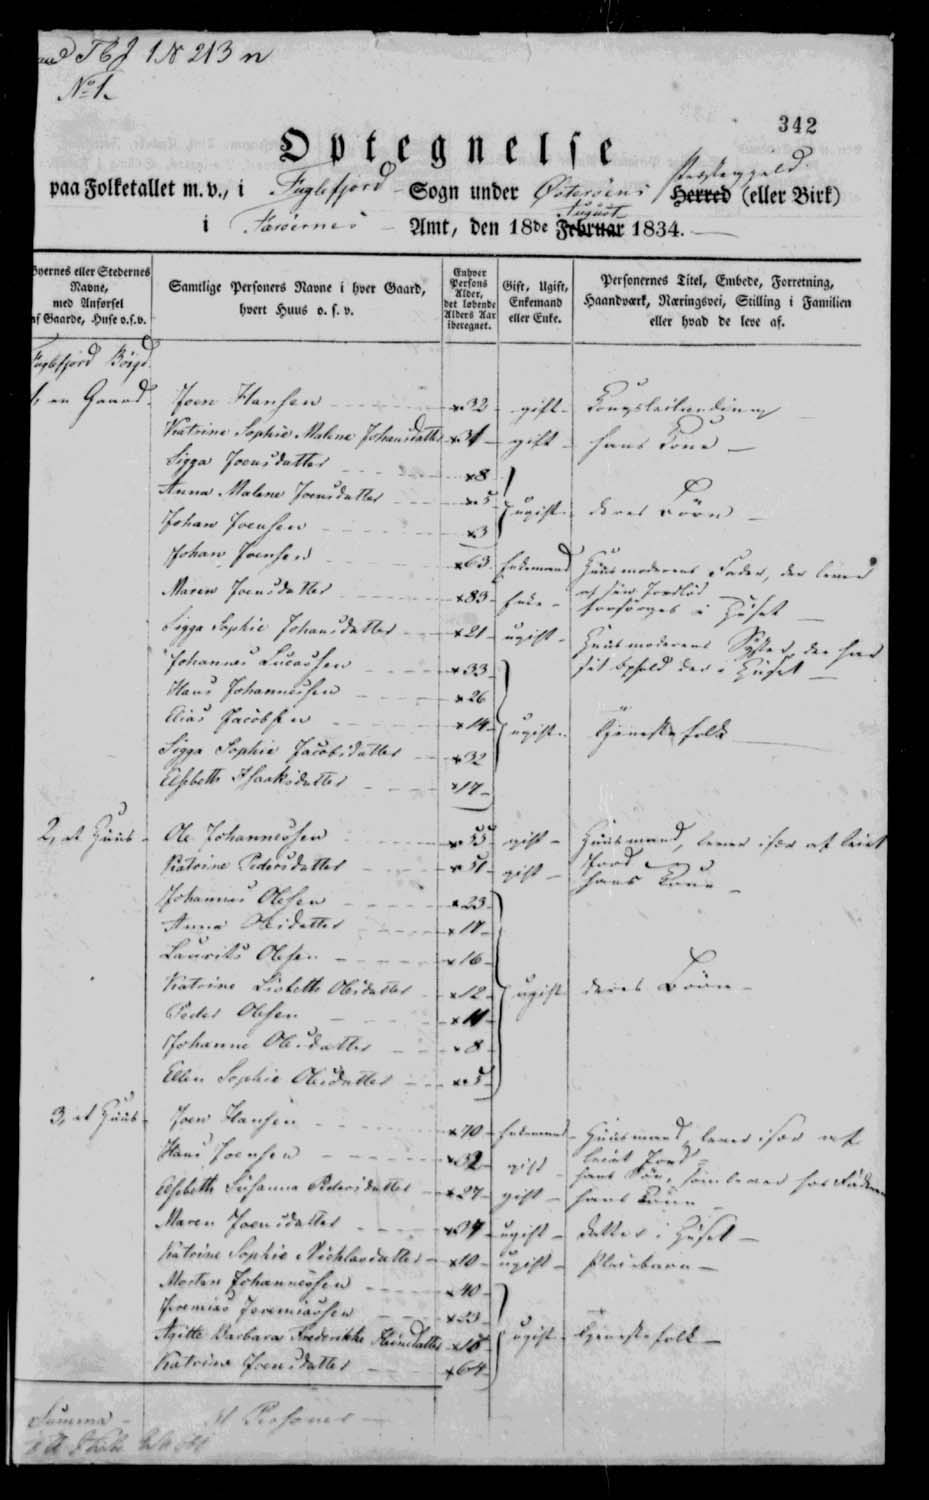 No 1.
342
Optegnelse
paa Folketallet m. v., i Fuglefjord Sogn under Österöens Præstegjeld Herred (eller Birk)
i Færöernes Amt, den 18de August Februar 1834.
Byernes eller Stedernes Navne, med Anførsel af Gaarde, Huse o.s.v.
Samtlige Personers Navne i hver Gaard, hvert Huus o. s. v.
Enhver Persons Alder, det løbende Alders Aar iberegnet.
Gift, Ugift, Enkemand eller Enke.
Personernes Titel, Embede, Forretning, Haandværk, Næringsvei, Stilling i Familien eller hvad de leve af.
Fuglefjord Böigd
1, en Gaard. Joen Hansen 32 gift
Katrine Sophie Malene Johansdatter 31 gift hans Kone
Sigga Joensdatter 8
Anna Malene Joensdatter 5 ugift deres Börn
Johan Joensen 3
Johan Joensen 63 Enkemand Huusmoderens Fader, der lever af sin Jordlod
Maren Joensdatter 83 Enke forsörges i Huset
Sigga Sophie Johansdatter 21 ugift Huusmoderens Syster, der har sit Ophold der i Huset
Johannes Lucassen 33
Hans Johannessen 26
Elias Jacobsen 14 ugift Tjenestefolk
Sigga Sophie Jacobsdatter 32
Elsebeth Isaaksdatter 17
2, et Huus Ole Johannessen 55 gift Huusmand, lever især af leiet Jord
Katrine Pedersdatter 51 gift hans Kone
Johannes Olesen 23
Anna Olesdatter 17
Laurits Olesen 16
Katrine Lisbeth Olesdatter 12 ugift deres Börn
Peder Olesen 11
Johanne Olesdatter 8
Ellen Sophie Olesdatter 5
3, et Huus Joen Hansen 70 Enkemand Huusmand, lever især af leiet Jord
Hans Joensen 32 gift hans Sön, som lever hos Faderen
Elsebeth Susanna Pedersdatter 27 gift hans Kone
Maren Joensdatter 34 ugift datter i Huset
Katrine Sophie Nichlasdatter 10 ugift Pleiebarn
Morten Johannessen 40
Jeremias Jeremiassen 23
Agitte Barbara Frederikke 15 ugift Tjenestefolk
Katrine Joensdatter 64
Summa Personer